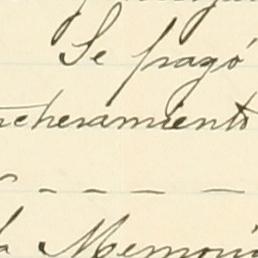 Se pagó
ncheramiento
la Memoria